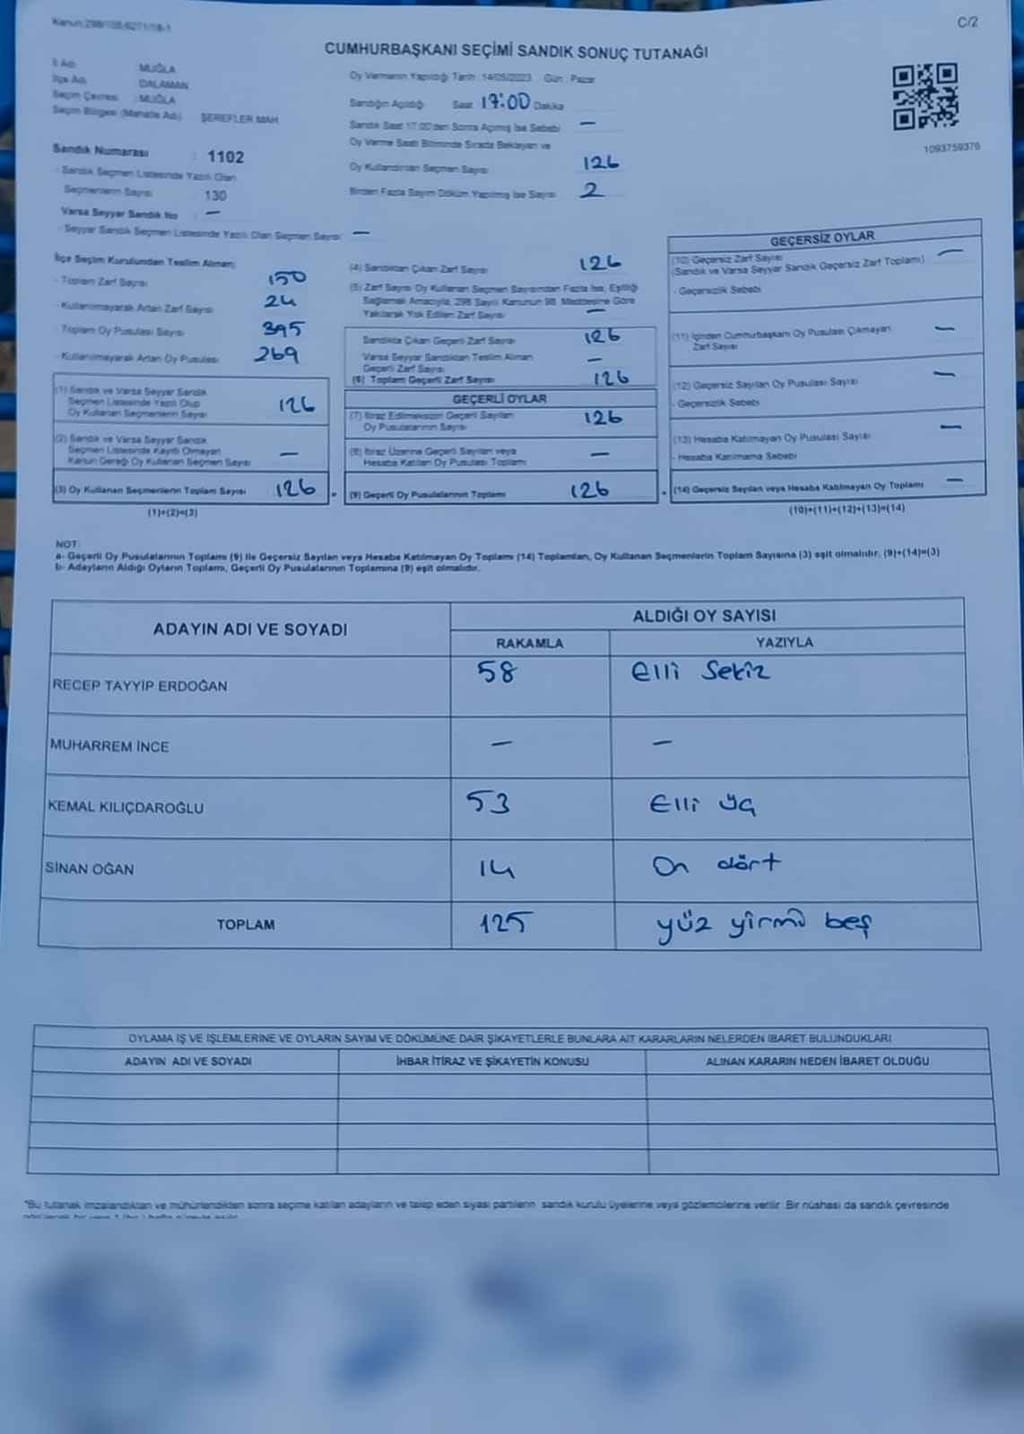 Kanun:298/105-6271/18-1
C/2
CUMHURBAŞKANI SEÇİMİ SANDIK SONUÇ TUTANAĞI
İl Adı : MUĞLA
İlçe Adı : DALAMAN
Seçim Çevresi : MUĞLA
Seçim Bölgesi (Mahalle Adı) : ŞEREFLER MAH.
Oy Vermenin Yapıldığı Tarih : 14/05/2023 Gün : Pazar
Sandığın Açıldığı Saat 17:00 Dakika
Sandık Saat 17:00'den Sonra Açılmış İse Sebebi —
Oy Verme Saati Bitiminde Sırada Bekleyen ve
Oy Kullandırılan Seçmen Sayısı 126
Birden Fazla Sayım Döküm Yapılmış İse Sayısı 2
1093759376
Sandık Numarası : 1102
- Sandık Seçmen Listesinde Yazılı Olan
Seçmenlerin Sayısı : 130
Varsa Seyyar Sandık No : —
- Seyyar Sandık Seçmen Listesinde Yazılı Olan Seçmen Sayısı: —
İlçe Seçim Kurulundan Teslim Alınan;
- Toplam Zarf Sayısı 150
- Kullanılmayarak Artan Zarf Sayısı 24
- Toplam Oy Pusulası Sayısı 395
- Kullanılmayarak Artan Oy Pusulası 269
(1) Sandık ve Varsa Seyyar Sandık
Seçmen Listesinde Yazılı Olup
Oy Kullanan Seçmenlerin Sayısı 126
(2) Sandık ve Varsa Seyyar Sandık
Seçmen Listesinde Kayıtlı Olmayan
Kanun Gereği Oy Kullanan Seçmen Sayısı —
(3) Oy Kullanan Seçmenlerin Toplam Sayısı 126
(1)+(2)=(3)
(4) Sandıktan Çıkan Zarf Sayısı 126
(5) Zarf Sayısı Oy Kullanan Seçmen Sayısından Fazla İse, Eşitliği
Sağlamak Amacıyla, 298 Sayılı Kanunun 98. Maddesine Göre
Yakılarak Yok Edilen Zarf Sayısı —
Sandıkta Çıkan Geçerli Zarf Sayısı 126
Varsa Seyyar Sandıktan Teslim Alınan
Geçerli Zarf Sayısı —
(6) Toplam Geçerli Zarf Sayısı 126
GEÇERLİ OYLAR
(7) İtiraz Edilmeksizin Geçerli Sayılan
Oy Pusulalarının Sayısı 126
(8) İtiraz Üzerine Geçerli Sayılan veya
Hesaba Katılan Oy Pusulası Toplamı —
(9) Geçerli Oy Pusulalarının Toplamı 126
GEÇERSİZ OYLAR
(10) Geçersiz Zarf Sayısı —
(Sandık ve Varsa Seyyar Sandık Geçersiz Zarf Toplamı)
- Geçersizlik Sebebi
(11) İçinden Cumhurbaşkanı Oy Pusulası Çıkmayan
Zarf Sayısı —
(12) Geçersiz Sayılan Oy Pusulası Sayısı —
- Geçersizlik Sebebi
(13) Hesaba Katılmayan Oy Pusulası Sayısı —
- Hesaba Katılmama Sebebi
(14) Geçersiz Sayılan veya Hesaba Katılmayan Oy Toplamı —
(10)+(11)+(12)+(13)=(14)
NOT:
a- Geçerli Oy Pusulalarının Toplamı (9) ile Geçersiz Sayılan veya Hesaba Katılmayan Oy Toplamı (14) Toplamları, Oy Kullanan Seçmenlerin Toplam Sayısına (3) eşit olmalıdır. (9)+(14)=(3)
b- Adayların Aldığı Oyların Toplamı, Geçerli Oy Pusulalarının Toplamına (9) eşit olmalıdır.
ADAYIN ADI VE SOYADI
ALDIĞI OY SAYISI
RAKAMLA YAZIYLA
RECEP TAYYİP ERDOĞAN 58 Elli Sekiz
MUHARREM İNCE — —
KEMAL KILIÇDAROĞLU 53 Elli üç
SİNAN OĞAN 14 On dört
TOPLAM 125 yüz yirmi beş
OYLAMA İŞ VE İŞLEMLERİNE VE OYLARIN SAYIM VE DÖKÜMÜNE DAİR ŞİKAYETLERLE BUNLARA AİT KARARLARIN NELERDEN İBARET BULUNDUKLARI
ADAYIN ADI VE SOYADI İHBAR İTİRAZ VE ŞİKAYETİN KONUSU ALINAN KARARIN NEDEN İBARET OLDUĞU
*Bu tutanak imzalandıktan ve mühürlendikten sonra seçime katılan adayların ve talep eden siyasi partilerin sandık kurulu üyelerine veya gözlemcilerine verilir. Bir nüshası da sandık çevresinde